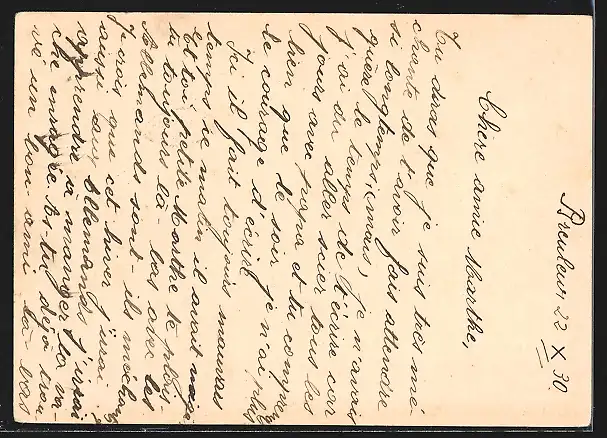 22 X 30.
Chère amie Marthe,
Tu diras que je suis très mé-
chante de t'avoir fais attendre
si longtemps, mais, je n'avais
guère le temps de t'écrire car
j'ai du aller scier tous les
jours avec papa et tu compre
bien que le soir je n'ai plus
le courage d'écrire.
Ici il fait toujours mauvais
temps ce matin il avait neigé
Et toi petite Marthe te plais-
tu toujours là-bas avec les
Allemands sont-ils méchants
Je crois que cet hiver j'irai
aussi aux Allemands
apprendre à manger la va-
che enragée. As-tu déjà trou-
vé un bon ami là bas